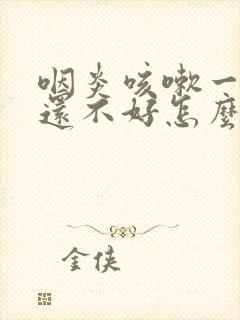 咽炎咳嗽一
還不好怎麼
金俠